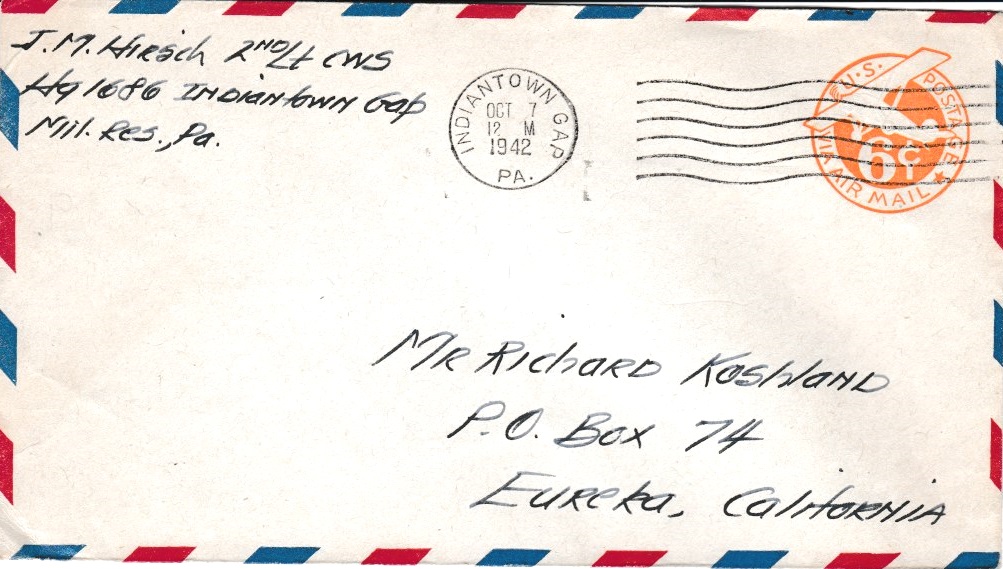 J. M. Hirsch 2ND Lt CWS
Hq 1686 Indiantown Gap
Mil. Res., Pa.
INDIANTOWN GAP
OCT 7
12 M
1942
PA.
U.S. POSTAGE
6¢
VIA AIR MAIL
Mr Richard Koshland
P.O. Box 74
Eureka, California